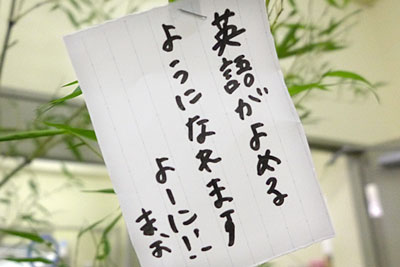 英語がよめる
ようになれます
よーに!!